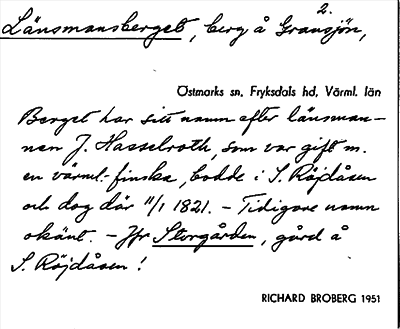 2.
Länsmansberget, berg å Gransjön,
Östmarks sn, Fryksdals hd, Värml. län
Berget har sitt namn efter länsman-
nen J. Hasselroth, som var gift m.
en värml.-finska, bodde i S. Röjdåsen
och dog där 11/1 1821. - Tidigare namn
okänt. - Jfr Storgården, gård å
S. Röjdåsen!
RICHARD BROBERG 1951